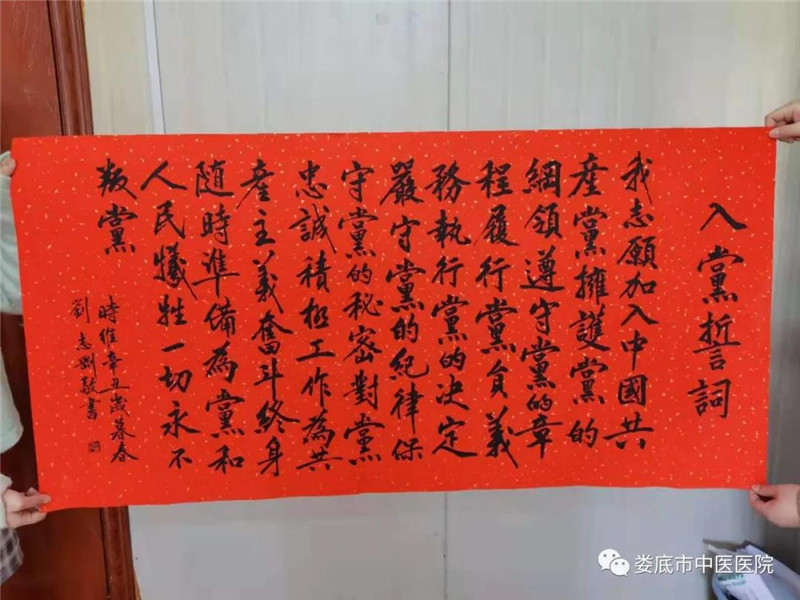 入黨誓詞
我志願加入中國共
産黨擁護黨的
綱領遵守黨的章
程履行黨員義
務執行黨的决定
嚴守黨的紀律保
守黨的秘密對黨
忠誠積極工作為共
産主義奮斗終身
随時準備為黨和
人民犧牲一切永不
叛黨
時維辛丑歲暮春
劉志剛敬書
娄底市中医医院